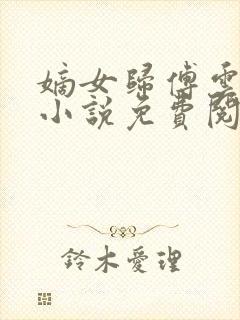 嫡女歸傅雲
小說免費閱
鈴木愛理